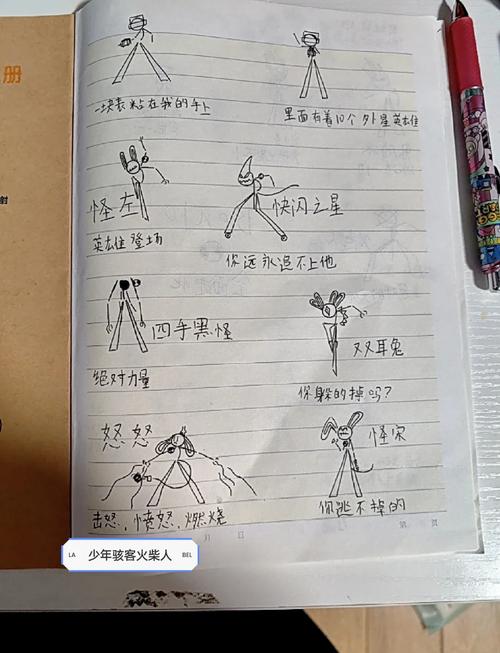 册
射
一块表粘在我的手上
里面有着10个外星英雄
怪左
英雄登场
快闪之星
你永远追不上他
四手黑怪
绝对力量
双双耳兔
你躲的掉吗?
怒怒
击怒,愤怒,燃烧
怪
你逃不掉的
月 日
第 页
LA 少年骇客火柴人 BEL